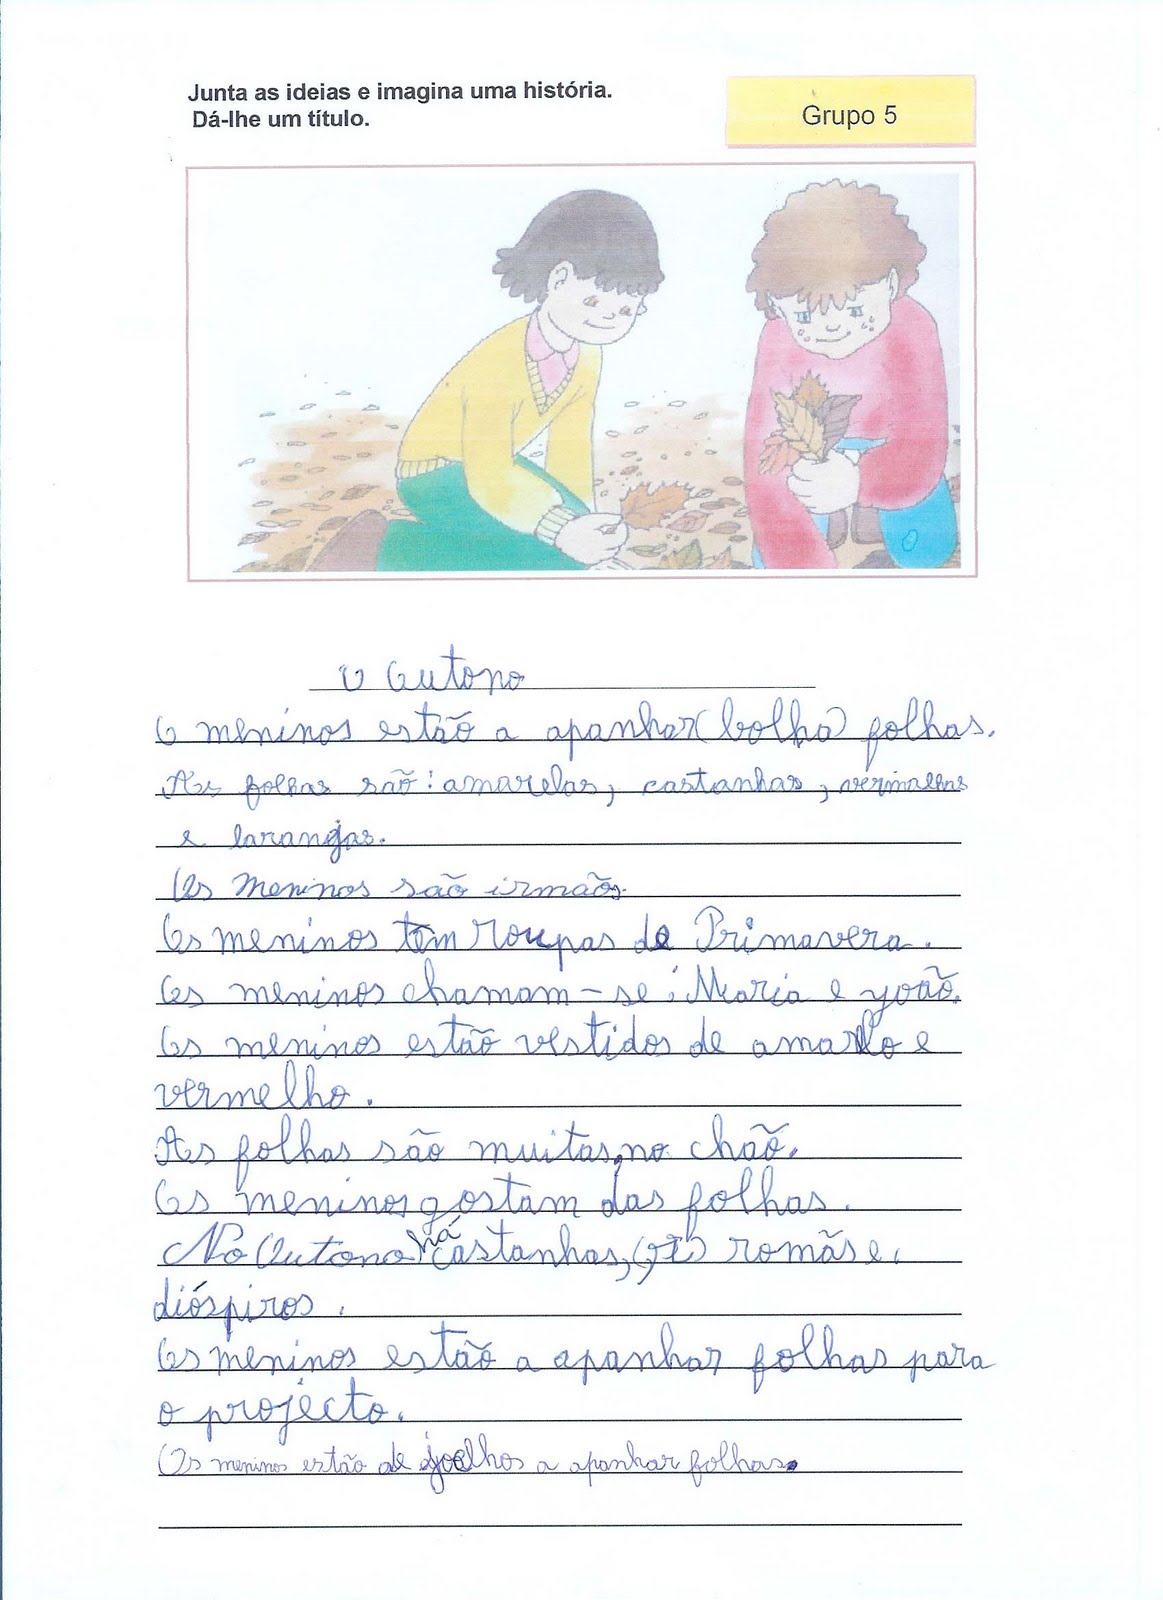 Junta as ideias e imagina uma história.
Dá-lhe um título.
Grupo 5
O Outono
O meninos estão a apanhar (bolha) folhas.
As folhas são: amarelas, castanhas, vermalhas
e laranjas.
Os meninos são irmãos.
Os meninos têm roupas de Primavera.
Os meninos chamam-se: Maria e João.
Os meninos estão vestidos de amarelo e
vermelho.
As folhas são muitas no chão.
Os meninos gostam das folhas.
No Outono há castanhas, romãs e
dióspiros.
Os meninos estão a apanhar folhas para
o projecto.
Os meninos estão de joelhos a apanhar folhas.